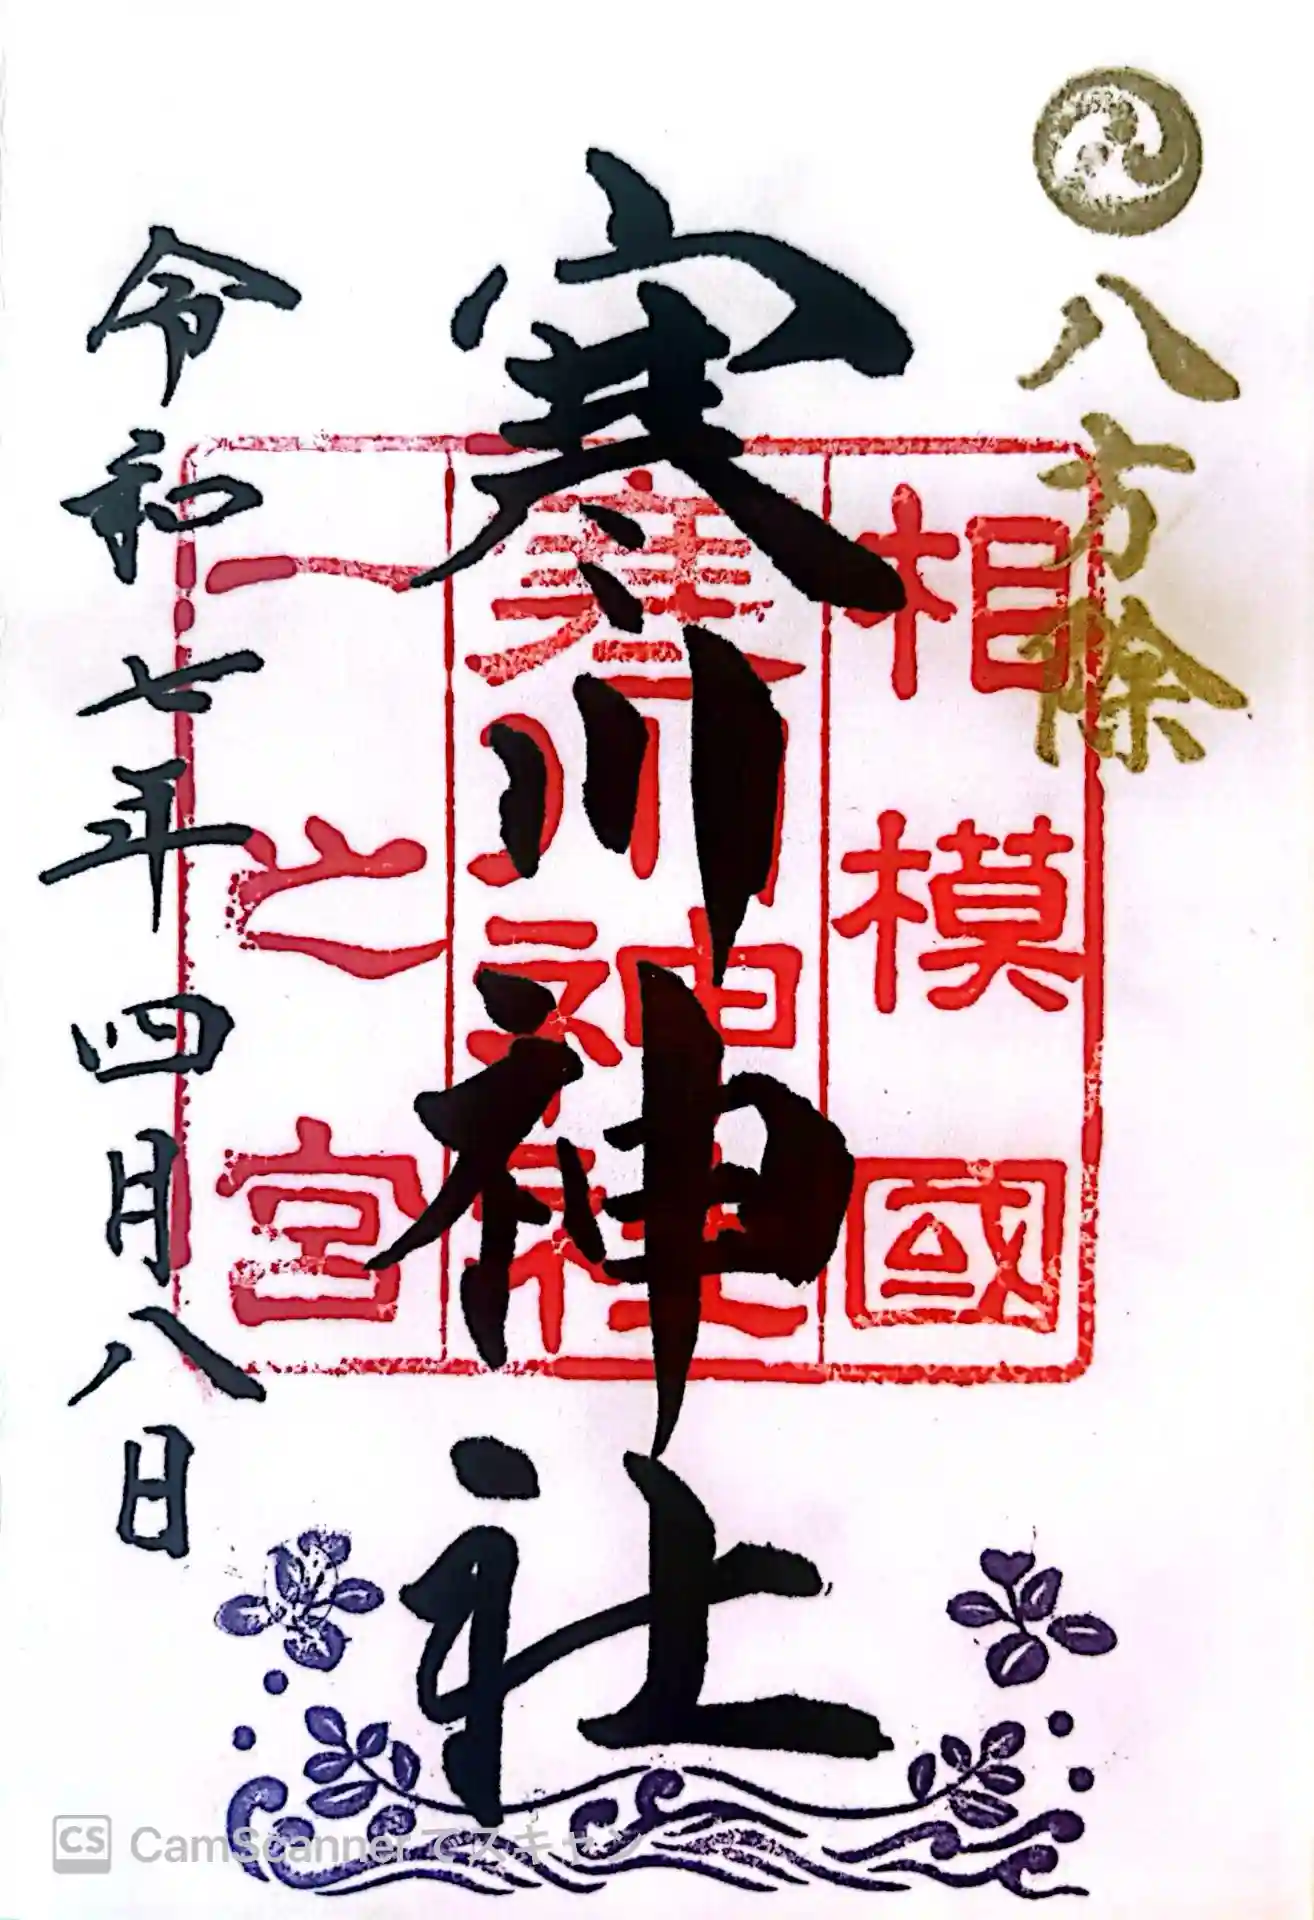 八方除
相模國
寒川神社
一之宮
寒川神社
令和七年四月八日
CS CamScannerでスキャン